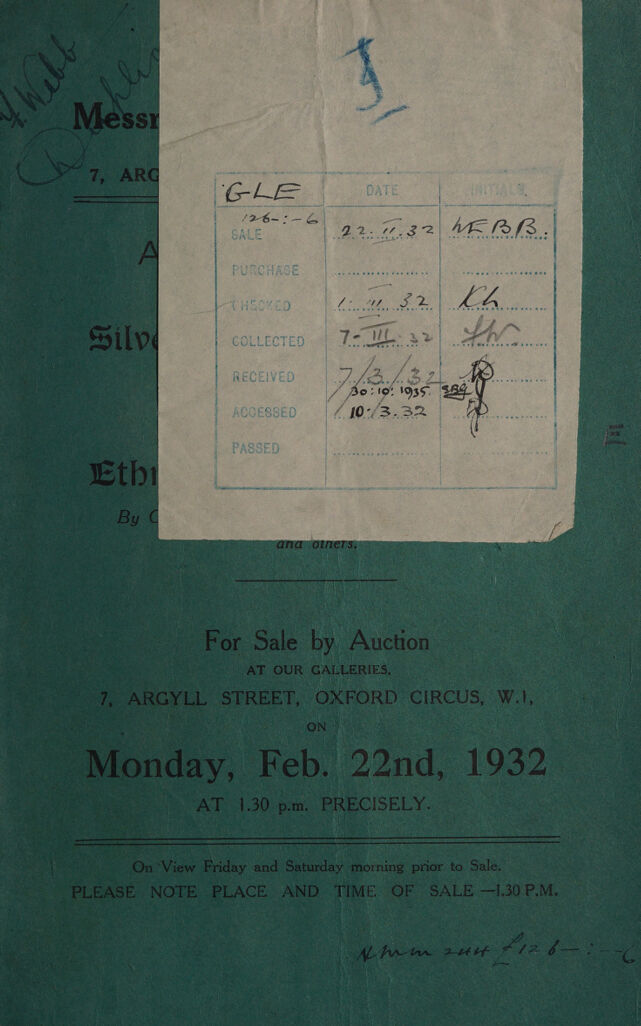 F. Webb
Messr
7, ARG
A
Silve
Ethn
By C
and others.
GLE
DATE
INITIALS.
126-:-6
SALE
22.II.32
WEBB.
PURCHASE
CHECKED
1. III 32
Kh
COLLECTED
7-III.32
RECEIVED
7/3/32
30:10:1935
SRG
ACCESSED
10.3.32
PASSED
For Sale by Auction
AT OUR GALLERIES,
7, ARGYLL STREET, OXFORD CIRCUS, W.1,
ON
Monday, Feb. 22nd, 1932
AT 1.30 p.m. PRECISELY.
On View Friday and Saturday morning prior to Sale.
PLEASE NOTE PLACE AND TIME OF SALE —1.30 P.M.
£126-:-6